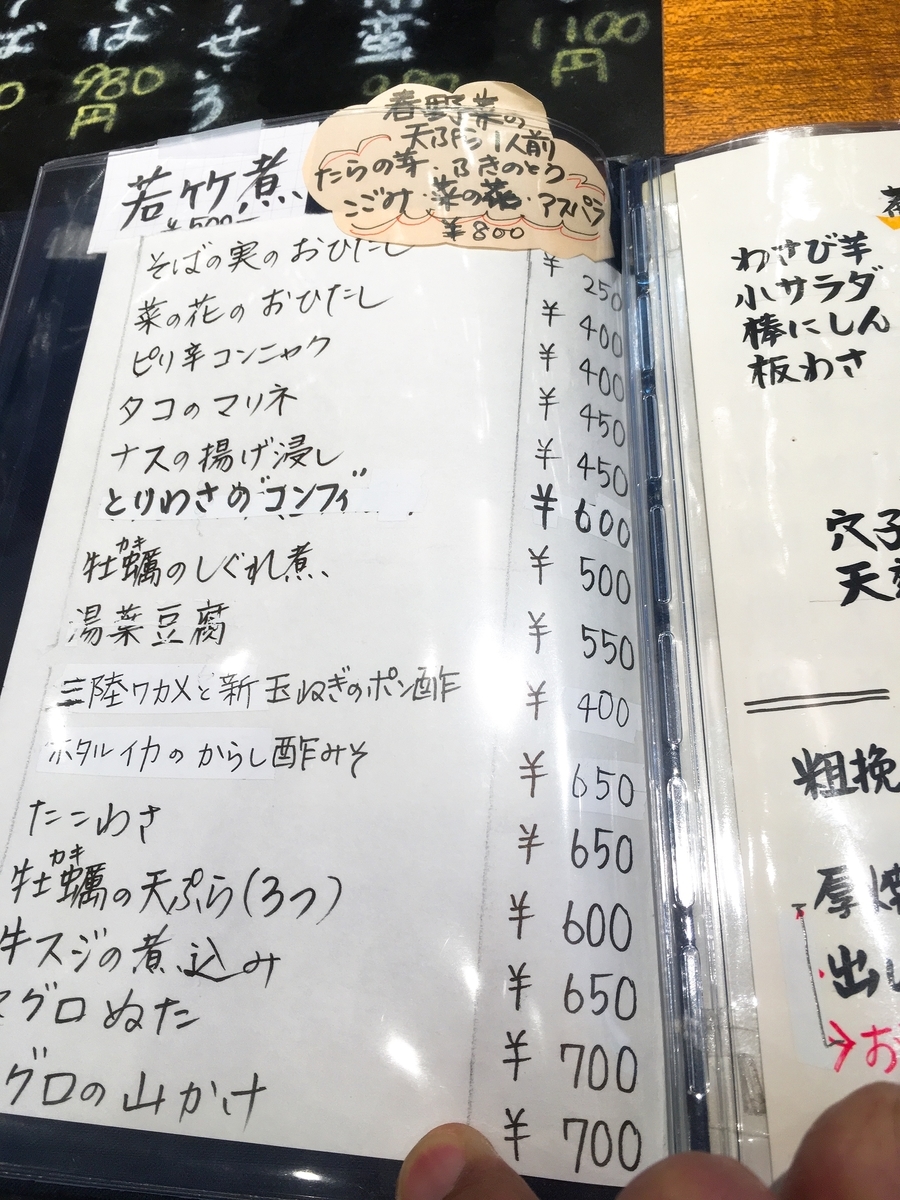 980
円
1100
円
春野菜の
天ぷら 1人前
たらの芽・ふきのとう
こごみ・菜の花・アスパラ
¥800
若竹煮
¥500
そばの実のおひたし ¥250
菜の花のおひたし ¥400
ピリ辛コンニャク ¥400
タコのマリネ ¥450
ナスの揚げ浸し ¥450
とりわさの"コンフィ" ¥600
カキ
牡蠣のしぐれ煮 ¥500
湯葉豆腐 ¥550
三陸ワカメと新玉ねぎのポン酢 ¥400
ホタルイカのからし酢みそ ¥650
たこわさ ¥650
カキ
牡蠣の天ぷら(3つ) ¥600
牛スジの煮込み ¥650
マグロぬた ¥700
グロの山かけ ¥700
わさび芋
小サラダ
棒にしん
板わさ
穴子
天
粗挽
厚焼
出し
→お